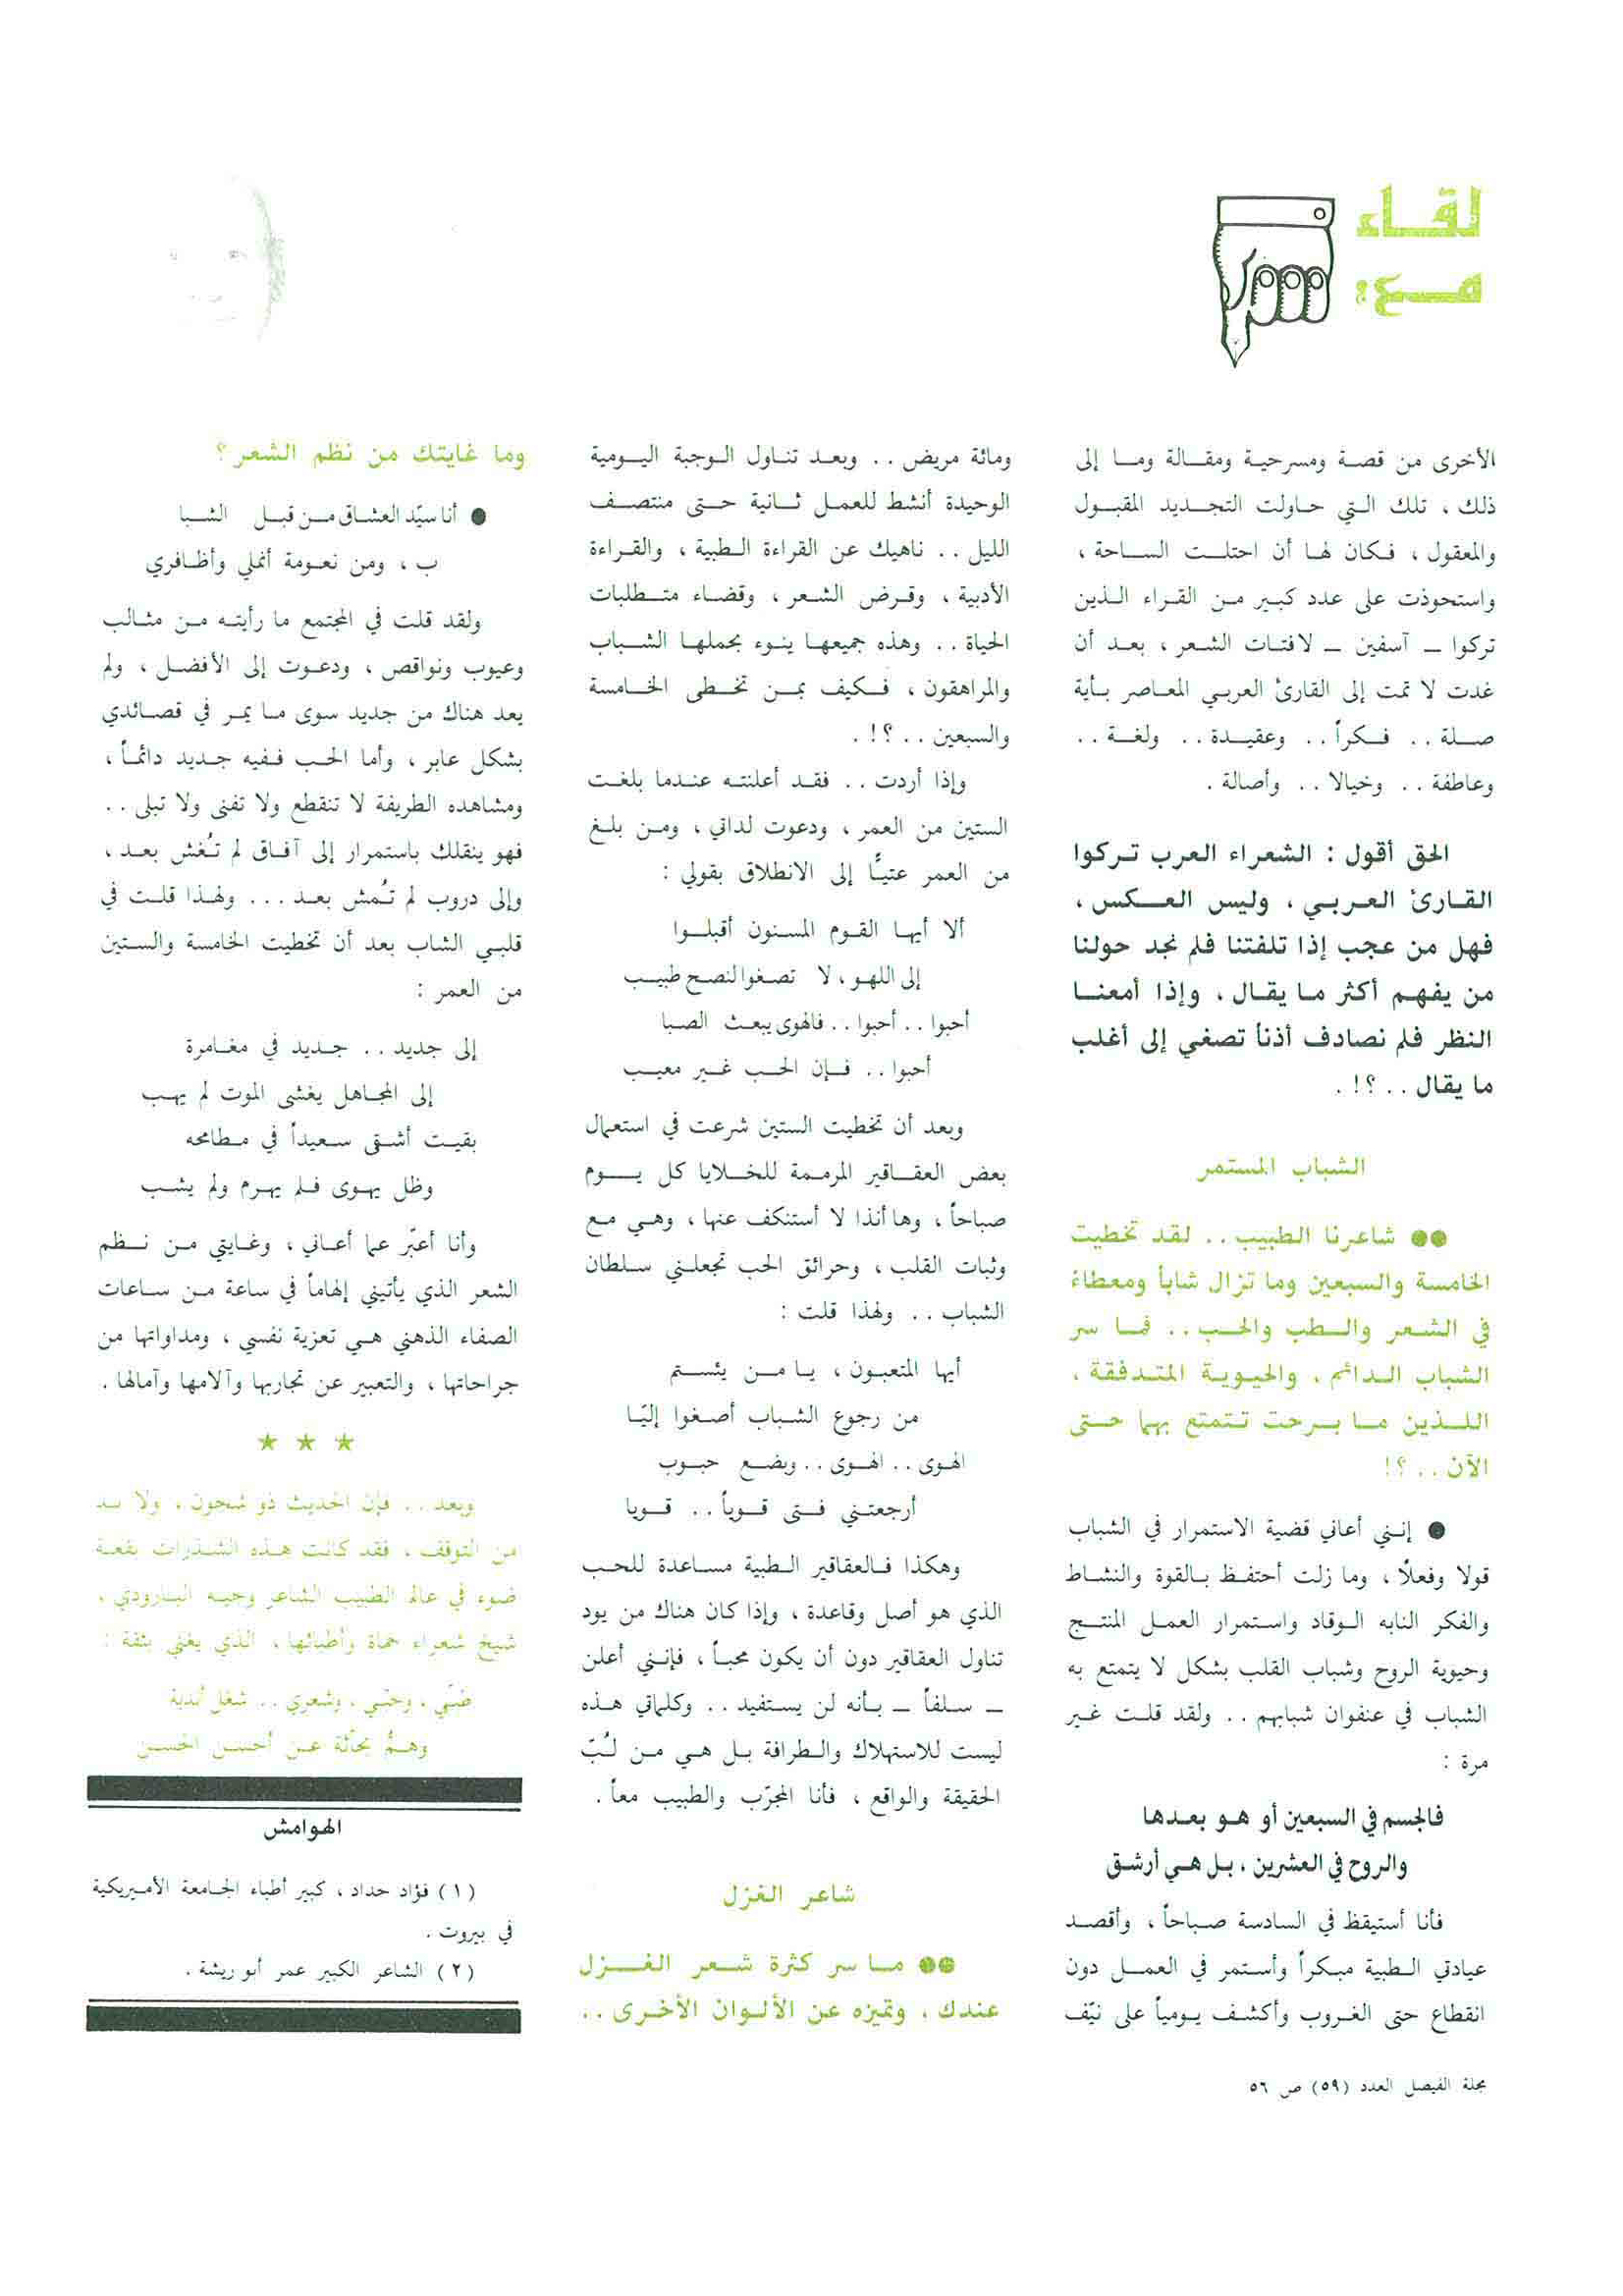 لقاء
مع:
الأخرى من قصة ومسرحية ومقالة وما إلى
ذلك ، تلك التي حاولت التجديد المقبول
والمعقول ، فكان لها أن احتلت الساحة ،
واستحوذت على عدد كبير من القراء الذين
تركوا ـ آسفين ـ لافتات الشعر ، بعد أن
غدت لا تمت إلى القارئ العربي المعاصر بأية
صلة .. فكراً .. وعقيدة .. ولغة ..
وعاطفة .. وخيالا .. وأصالة .
الحق أقول : الشعراء العرب تركوا
القارئ العربي ، وليس العكس ،
فهل من عجب إذا تلفتنا فلم نجد حولنا
من يفهم أكثر ما يقال ، وإذا أمعنا
النظر فلم نصادف أذناً تصغي إلى أغلب
ما يقال .. ؟! .
الشباب المستمر
●● شاعرنا الطبيب .. لقد تخطيت
الخامسة والسبعين وما تزال شاباً ومعطاءً
في الشعر والطب والحب .. فما سر
الشباب الدائم ، والحيوية المتدفقة ،
اللذين ما برحت تتمتع بهما حتى
الآن .. ؟!
● إنني أعاني قضية الاستمرار في الشباب
قولا وفعلًا ، وما زلت أحتفظ بالقوة والنشاط
والفكر النابه الوقاد واستمرار العمل المنتج
وحيوية الروح وشباب القلب بشكل لا يتمتع به
الشباب في عنفوان شبابهم .. ولقد قلت غير
مرة :
فالجسم في السبعين أو هو بعدها
والروح في العشرين ، بل هي أرشق
فأنا أستيقظ في السادسة صباحاً ، وأقصد
عيادتي الطبية مبكراً وأستمر في العمل دون
انقطاع حتى الغروب وأكشف يومياً على نيّف
ومائة مريض .. وبعد تناول الوجبة اليومية
الوحيدة أنشط للعمل ثانية حتى منتصف
الليل .. ناهيك عن القراءة الطبية ، والقراءة
الأدبية ، وقرض الشعر ، وقضاء متطلبات
الحياة .. وهذه جميعها ينوء بحملها الشباب
والمراهقون ، فكيف بمن تخطى الخامسة
والسبعين .. ؟! .
وإذا أردت .. فقد أعلنته عندما بلغت
الستين من العمر ، ودعوت لداتي ، ومن بلغ
من العمر عتياً إلى الانطلاق بقولي :
ألا أيها القوم المسنون أقبلوا
إلى اللهو ، لا تصغوا لنصح طبيب
أحبوا .. أحبوا .. فالهوى يبعث الصبا
أحبوا .. فإن الحب غير معيب
وبعد أن تخطيت الستين شرعت في استعمال
بعض العقاقير المرممة للخلايا كل يوم
صباحاً ، وها أنذا لا أستنكف عنها ، وهي مع
وثبات القلب ، وحرائق الحب تجعلني سلطان
الشباب .. ولهذا قلت :
أيها المتعبون ، يا من يئستم
من رجوع الشباب أصغوا إليّا
الهوى .. الهوى .. وبضع حبوب
أرجعتني فتى قوياً .. قويا
وهكذا فالعقاقير الطبية مساعدة للحب
الذي هو أصل وقاعدة ، وإذا كان هناك من يود
تناول العقاقير دون أن يكون محباً ، فإنني أعلن
ـ سلفاً ـ بأنه لن يستفيد .. وكلماتي هذه
ليست للاستهلاك والطرافة بل هي من لُبّ
الحقيقة والواقع ، فأنا المجرّب والطبيب معاً .
شاعر الغزل
●● ما سر كثرة شعر الغزل
عندك ، وتميزه عن الألوان الأخرى ..
وما غايتك من نظم الشعر ؟
● أنا سيّد العشاق من قبل الشبا
ب ، ومن نعومة أنملي وأظافري
ولقد قلت في المجتمع ما رأيته من مثالب
وعيوب ونواقص ، ودعوت إلى الأفضل ، ولم
يعد هناك من جديد سوى ما يمر في قصائدي
بشكل عابر ، وأما الحب ففيه جديد دائماً ،
ومشاهده الطريفة لا تنقطع ولا تفنى ولا تبلى ..
فهو ينقلك باستمرار إلى آفاق لم تُغش بعد ،
وإلى دروب لم تُمش بعد ... ولهذا قلت في
قلبي الشاب بعد أن تخطيت الخامسة والستين
من العمر :
إلى جديد .. جديد في مغامرة
إلى المجاهل يغشى الموت لم يهب
بقيت أشقى سعيداً في مطامحه
وظل يهوى فلم يهرم ولم يشب
وأنا أعبّر عما أعاني ، وغايتي من نظم
الشعر الذي يأتيني إلهاماً في ساعة من ساعات
الصفاء الذهني هي تعزية نفسي ، ومداواتها من
جراحاتها ، والتعبير عن تجاربها وآلامها وآمالها .
★ ★ ★
وبعد .. فإن الحديث ذو شجون ، ولا بد
من التوقف ، فقد كانت هذه الشذرات بقعة
ضوء في عالم الطبيب الشاعر وجيه البارودي ،
شيخ شعراء حماة وأطبائها ، الذي يغني بثقة :
طبّي ، وحبّي ، وشعري .. شغل أندية
وهمُّ بحّاثة عن أحسن الحسن
الهوامش
(١) فؤاد حداد ، كبير أطباء الجامعة الأميريكية
في بيروت .
(٢) الشاعر الكبير عمر أبو ريشة .
مجلة الفيصل العدد (٥٩) ص ٥٦